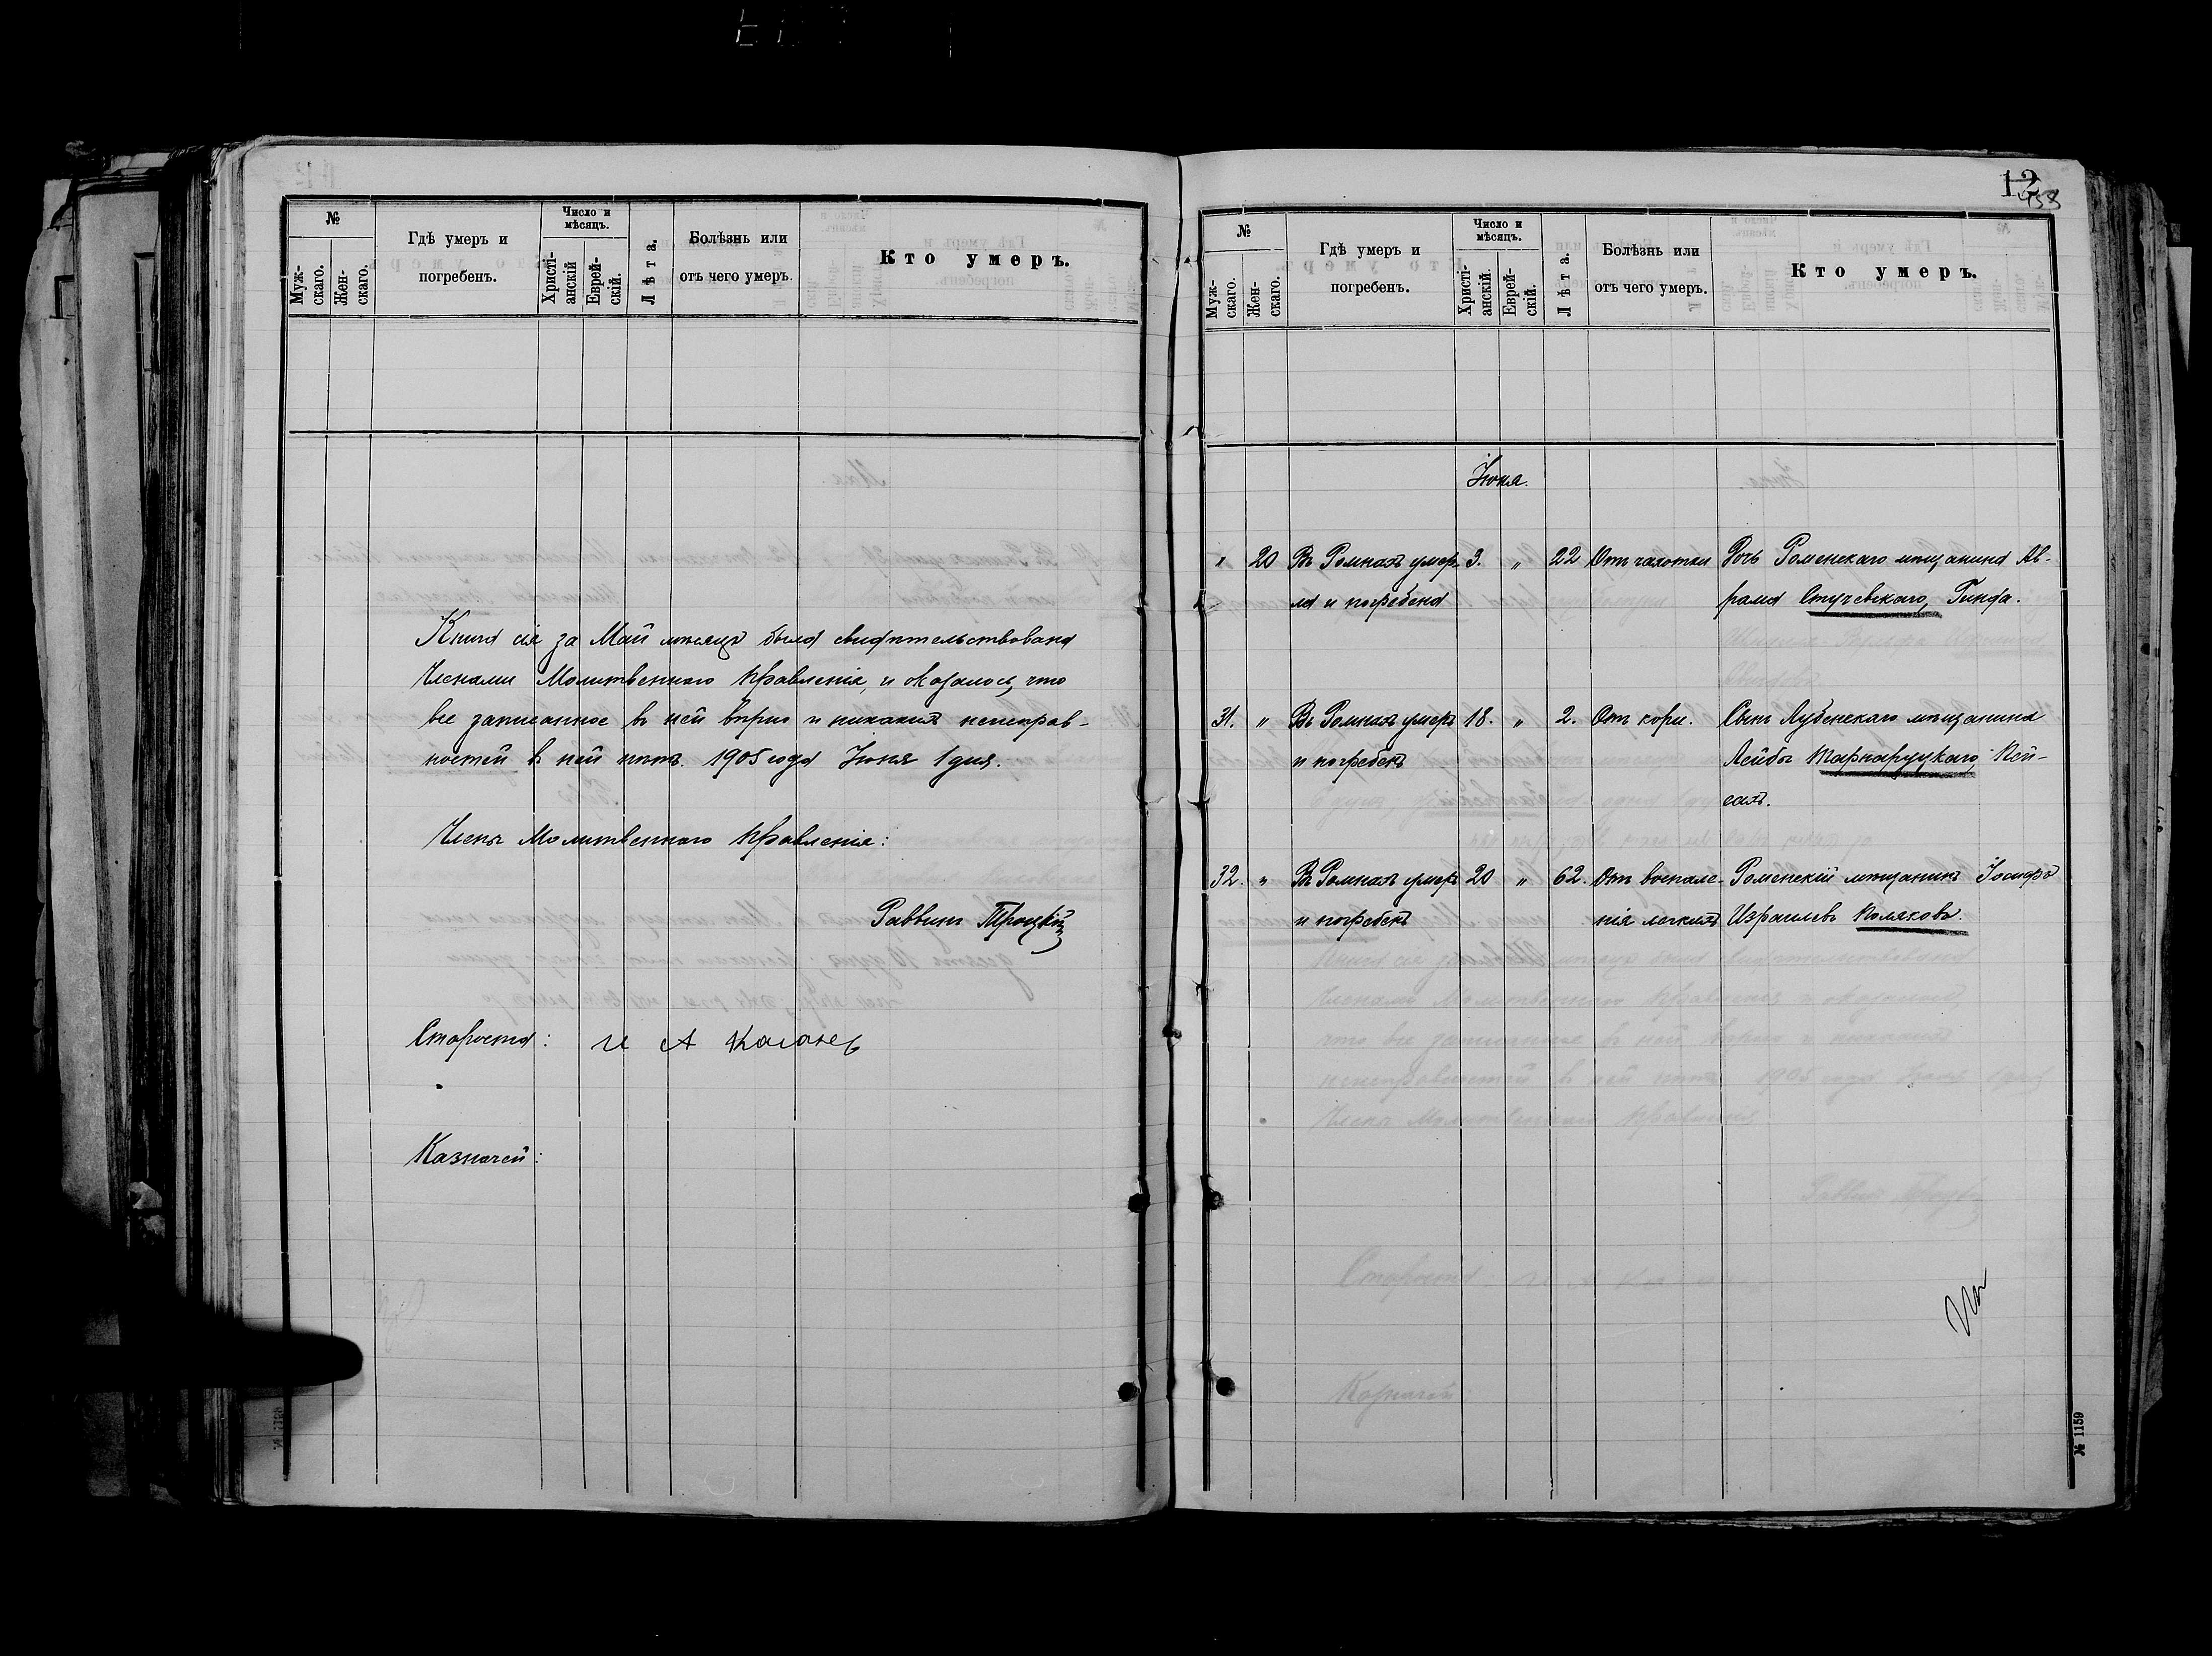 №
Муж-
скаго.
Жен-
скаго.
Гдѣ умеръ и
погребенъ.
Число и
мѣсяцъ.
Христі-
анскій
Еврей-
скій.
Лѣта.
Болѣзнь или
отъ чего умеръ.
Кто умеръ.
Книга сія за Май мѣсяцъ была свидѣтельствована
Членами Молитвеннаго Правленія, и оказалось, что
все записанное въ ней вѣрно и никакихъ неисправ-
ностей въ ней нѣтъ. 1905 года Іюня 1 дня.
Члены Молитвеннаго Правленія:
Раввинъ Троцкій
Староста: И А
Казначей:
12
№
Муж-
скаго.
Жен-
скаго.
Гдѣ умеръ и
погребенъ.
Число и
мѣсяцъ.
Христі-
анскій.
Еврей-
скій.
Лѣта.
Болѣзнь или
отъ чего умеръ.
Кто умеръ.
Іюня.
" 20 Въ Ромнахъ умер- 3. " 22 От чахотки Дочь Роменскаго мѣщанина Аб-
ла и погребена рама Гинда.
31. " Въ Ромнахъ умеръ 18. " 2. От кори. Сынъ Лубенскаго мѣщанина
и погребенъ Лейбы Тарнаруцкаго, Пей-
сахъ.
32. " Въ Ромнахъ умеръ 20 " 62. От воспале- Роменскій мѣщанинъ Іосифъ
и погребенъ нія легкихъ Израилевъ Поляковъ.
№ 1159